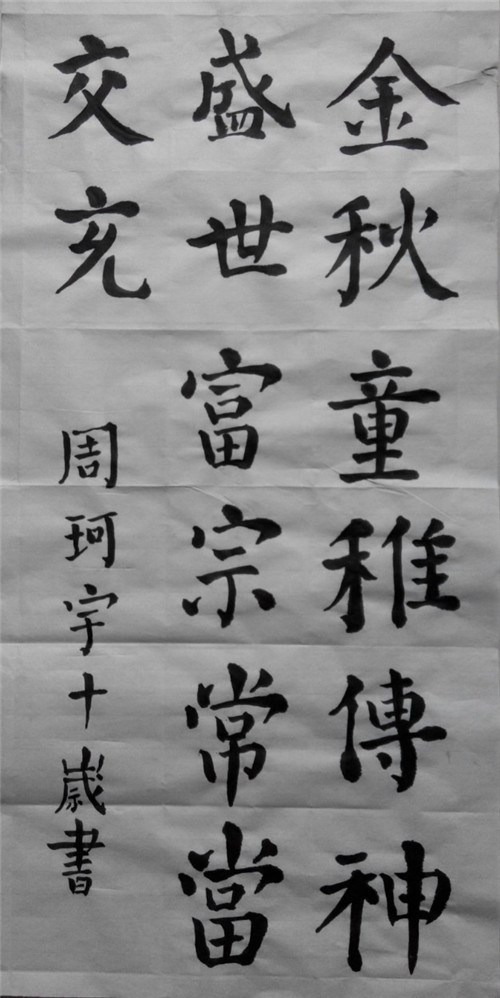 金秋童稚傳神
盛世富宗常當
交充
周珂宇十歲書